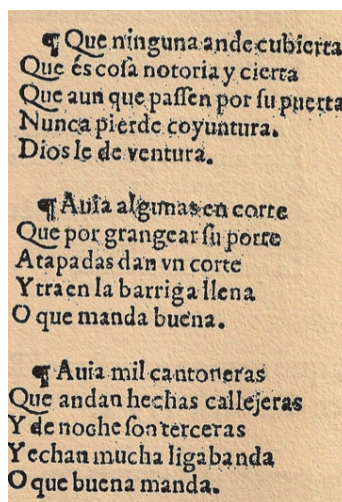 ¶ Que ninguna ande cubierta
Que és cosa notoria y cierta
Que aun que passen por su puerta
Nunca pierde coyuntura.
Dios le de ventura.
¶ Auia algunas en corte
Que por grangear su porte
Atapadas dan vn corte
Y traen la barriga llena
O que manda buena.
¶ Auia mil cantoneras
Que andan hechas callejeras
Y de noche son terceras
Y echan mucha ligabanda
O que buena manda.